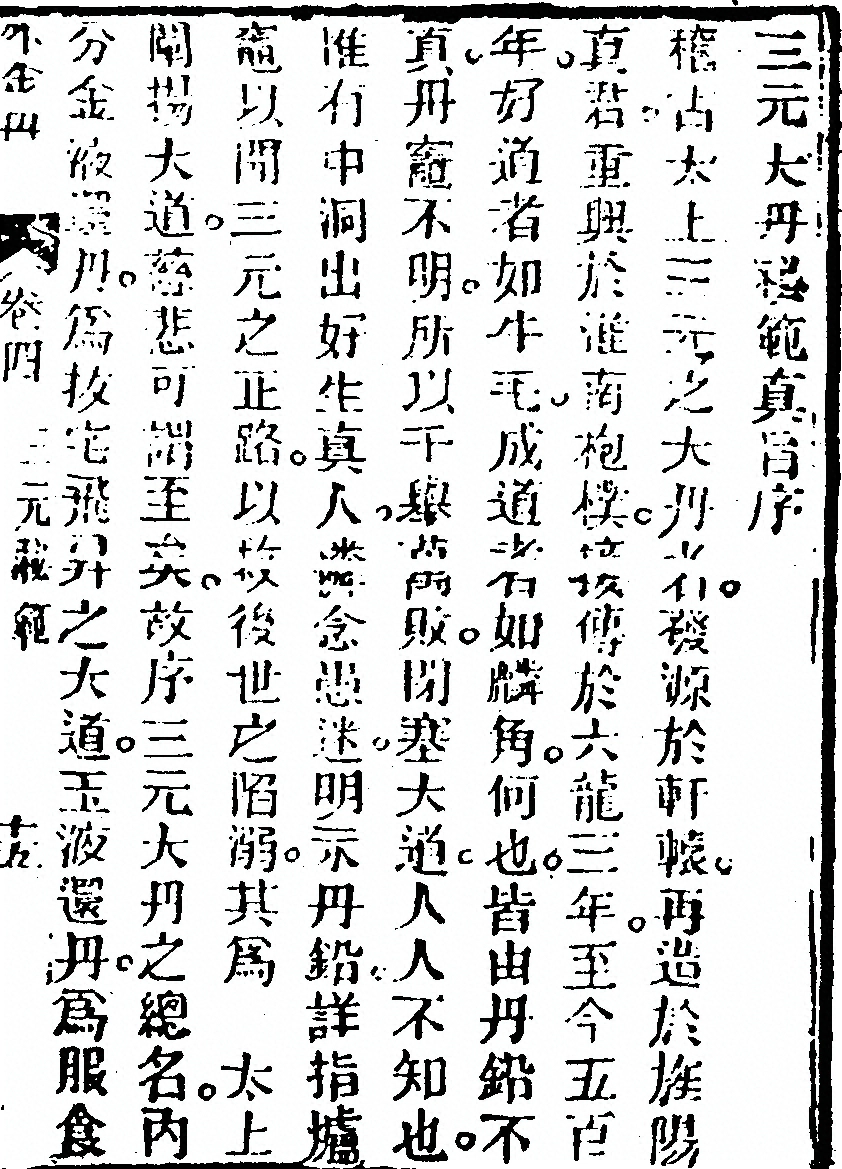 三元大丹秘範真旨序
稽古太上三元之大丹者。發源於軒轅。再造於旌陽
真君。重興於淮南枹樸。接傳於六龍三年。至今五百
年。好道者如牛毛。成道者如麟角。何也。皆由丹鉛不
真。丹竈不明。所以千舉萬敗。閉塞大道。人人不知也。
惟有中洞出好生真人。憐念愚迷。明示丹鉛。詳指爐
竈以開三元之正路。以救後世之陷溺。其爲　太上
闡揚大道。慈悲可謂至矣。故序三元大丹之總名。内
分金液還丹。爲拔宅飛昇之大道。玉液還丹。爲服食
外金丹　卷四　三元秘範　十五